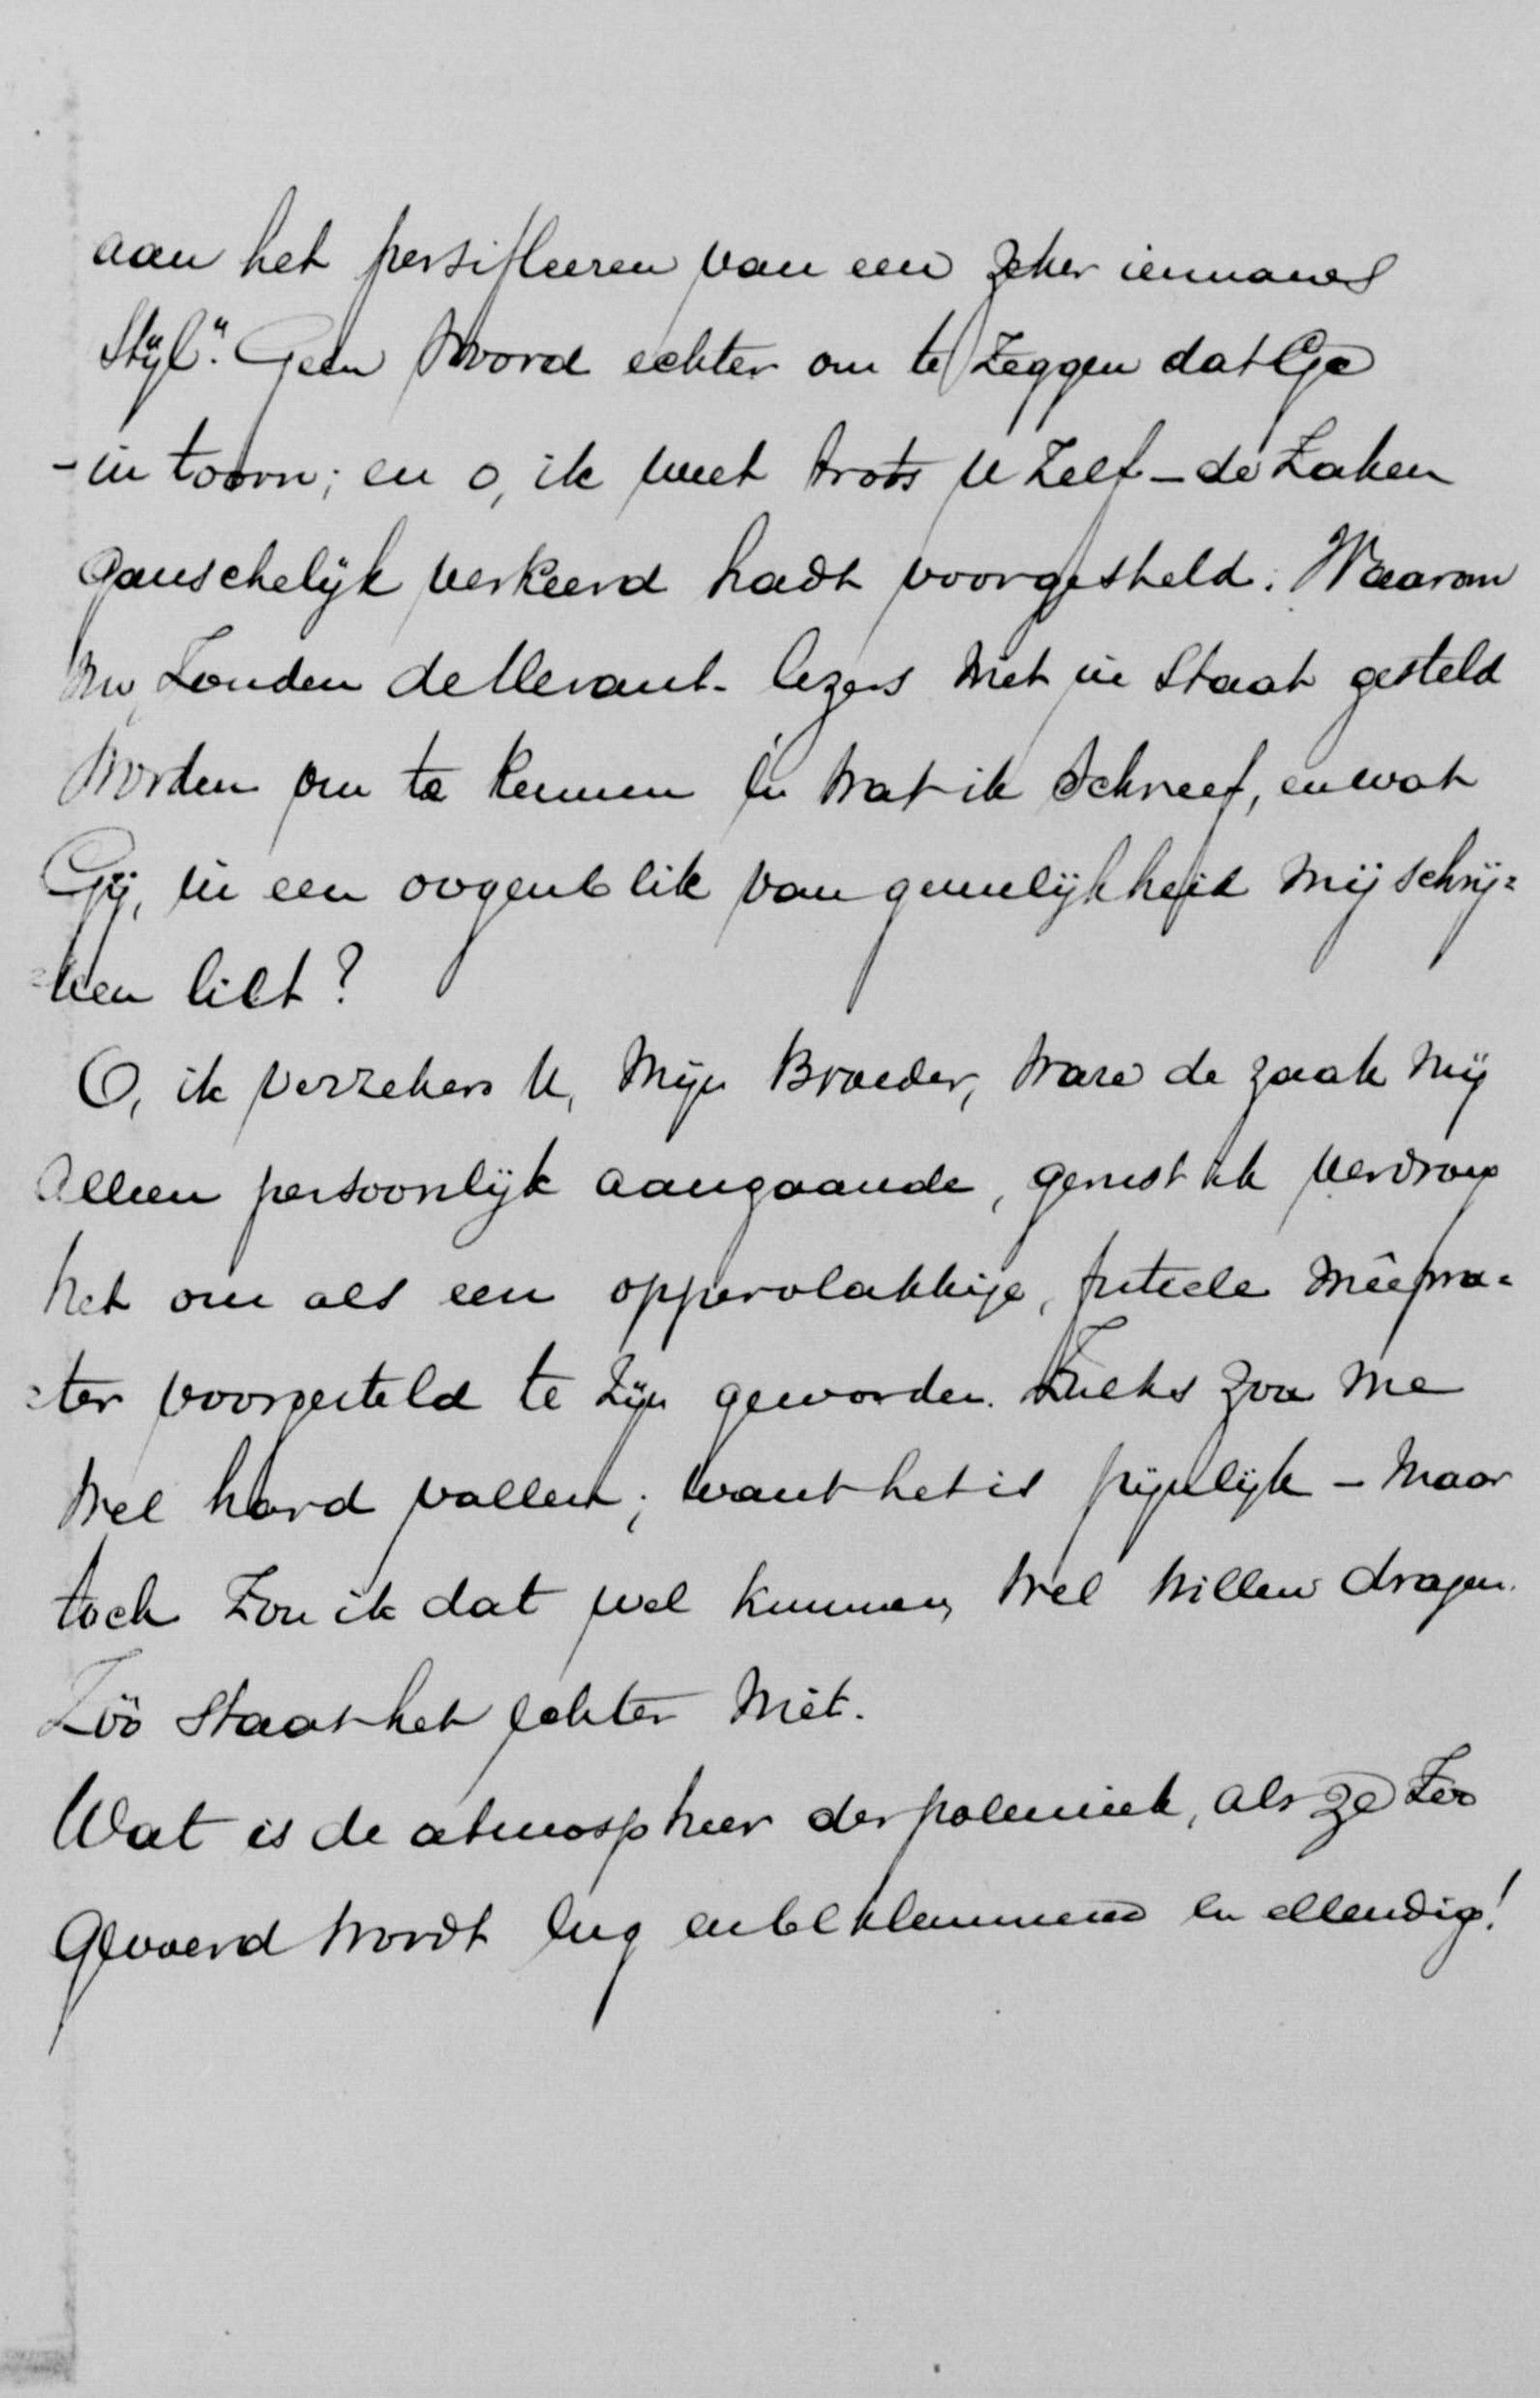 aan het persifleeren van een zeker iemands
Stijl". Geen woord echter om te zeggen dat Ge
- in toorn; en o, ik weet trots U zelf - de zaken
ganschelijk verkeerd hadt voorgesteld. Waarom
nu zouden de lezers niet in staat gesteld
worden om te kennen èn wat ik schreef, en wat
Gij, in een oogenblik van gemelijkheid mij schrij=
=ven liet?
O, ik verzeker U, mijn Broeder, ware de zaak mij
alleen persoonlijk aangaande, gerust ik verdroeg
het om als een oppervlakkige, futiele mêepra=
=ter voorgesteld te zijn geworden. Zulks zou me
wel hard vallen; want het is pijnlijk - maar
toch zou ik dat wel kunnen, wel willen dragen.
Zóó staat het echter niet.
Wat is de atmospheer der polemiek, als ze zoo
gevoerd wordt eng en beklemmend en ellendig!